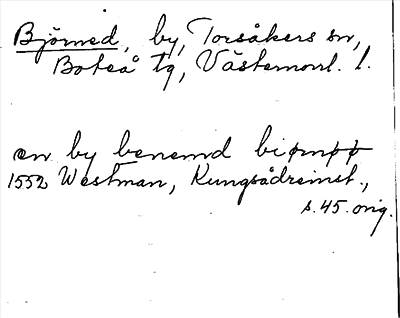 Björned, by, Torsåkers sn,
Boteå tg, Västernorrl. l.
en by benemd
1552 Westman, Kungsådreinst.,
s. 45. orig.